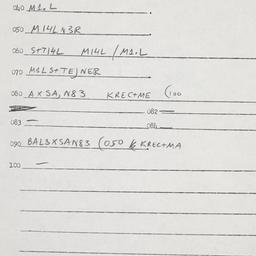 040 M1.L
050 M I4L N3R
060 S+7)4L M14L / M1.L
070 M1L S+TE)NER
080 A X SA, N83 KREC+ME (100
082 —
083 —
084
090 BAL3XSAN83 (050 KREC+MA
100 —